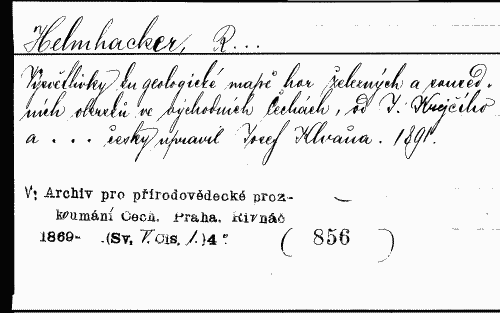 Helmhacker, R...
Vysvětlivky ku geologické mapě hor železných a soused.
ních okresků ve východních Čechách, od J. Krejčího
a ... česky upravil Josef Klvaňa. 1891.
V: Archiv pro přírodovědecké proz-
koumání Čech. Praha. Řivnáč
1869- .(Sv. V. čís. 1.) 4°
( 856 )